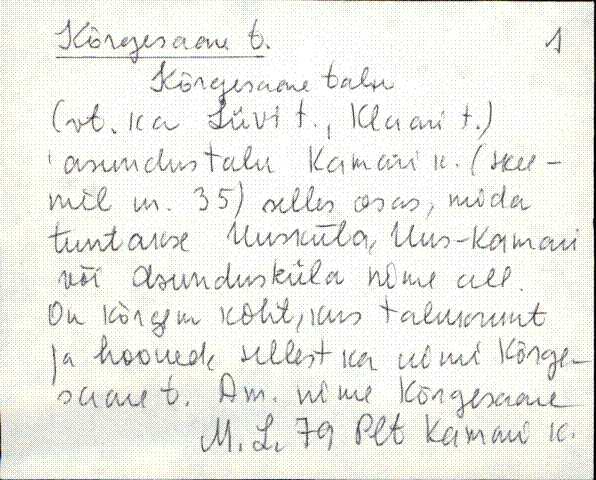 Kõrgesaare t. 1
Kõrgesaare talu
(vt. ka Liivi t., Klaari t.)
asundustalu Kamari k. (skee-
mil nr. 35) selles osas, mida
tuntakse Uusküla, Uus-Kamari
või Asundusküla nime all.
On kõrgem koht, kus talukrunt
ja hooned, sellest ka nimi Kõrge-
saare t. Am. nime Kõrgesaare
M. L. 79 Plt Kamari k.